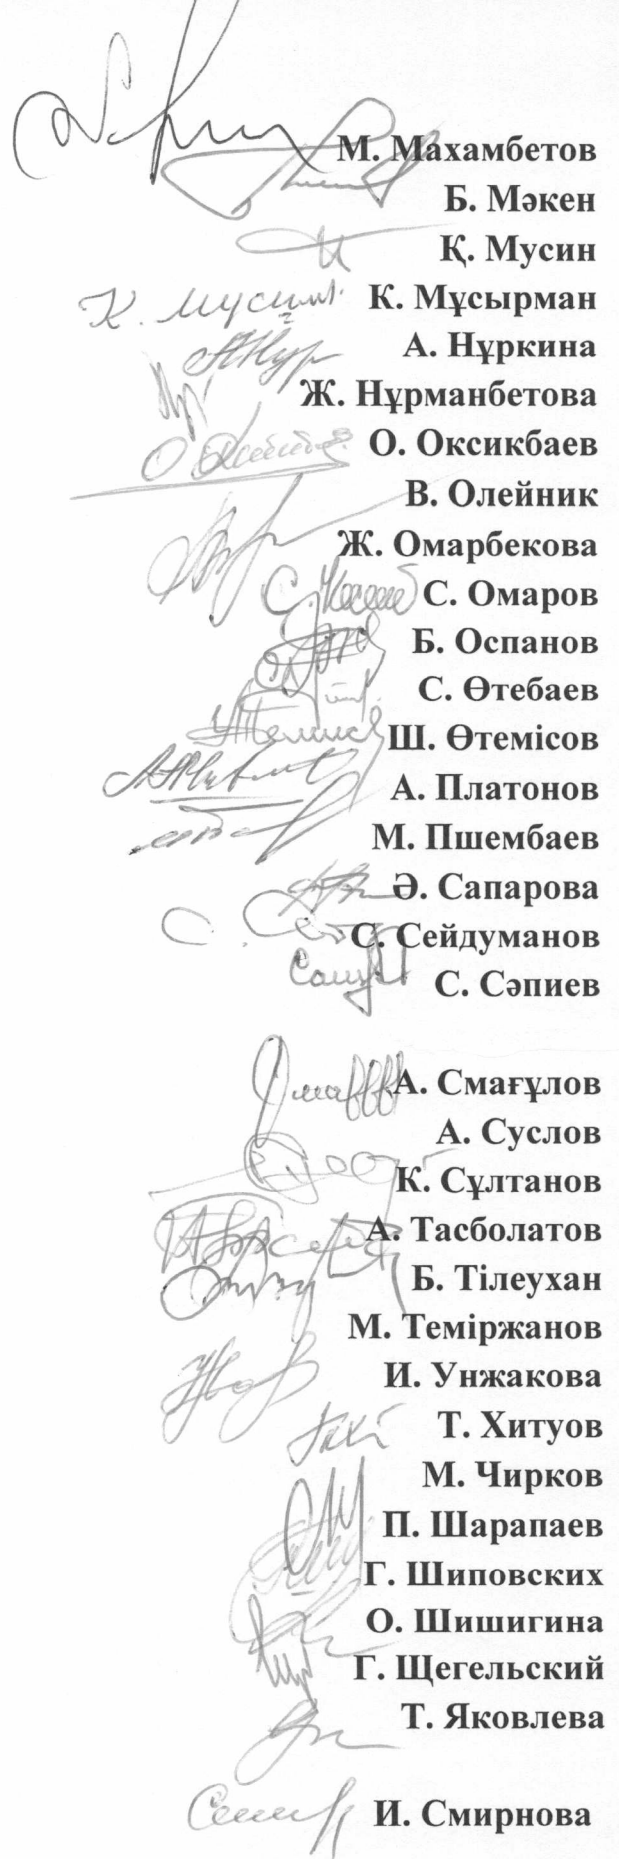 М. Махамбетов
Б. Мәкен
Қ. Мусин
К. Мұсырман
А. Нұркина
Ж. Нұрманбетова
О. Оксикбаев
В. Олейник
Ж. Омарбекова
С. Омаров
Б. Оспанов
С. Өтебаев
Ш. Өтемісов
А. Платонов
М. Пшембаев
Ә. Сапарова
С. Сейдуманов
С. Сәпиев
А. Смағұлов
А. Суслов
К. Сұлтанов
А. Тасболатов
Б. Тілеухан
М. Теміржанов
И. Унжакова
Т. Хитуов
М. Чирков
П. Шарапаев
Г. Шиповских
О. Шишигина
Г. Щегельский
Т. Яковлева
И. Смирнова